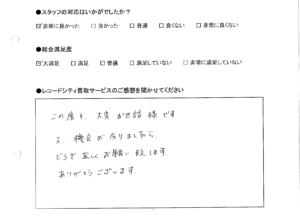 ●スタッフの対応はいかがでしたか？
☑非常に良かった □良かった □普通 □良くない □非常に良くない
●総合満足度
☑大満足 □満足 □普通 □満足していない □非常に満足していない
●レコードシティ買取サービスのご感想を聞かせてください
この度も、大変お世話様です
又、機会が有りましたら、
どうぞ宜しくお願い致します。
ありがとうございます。